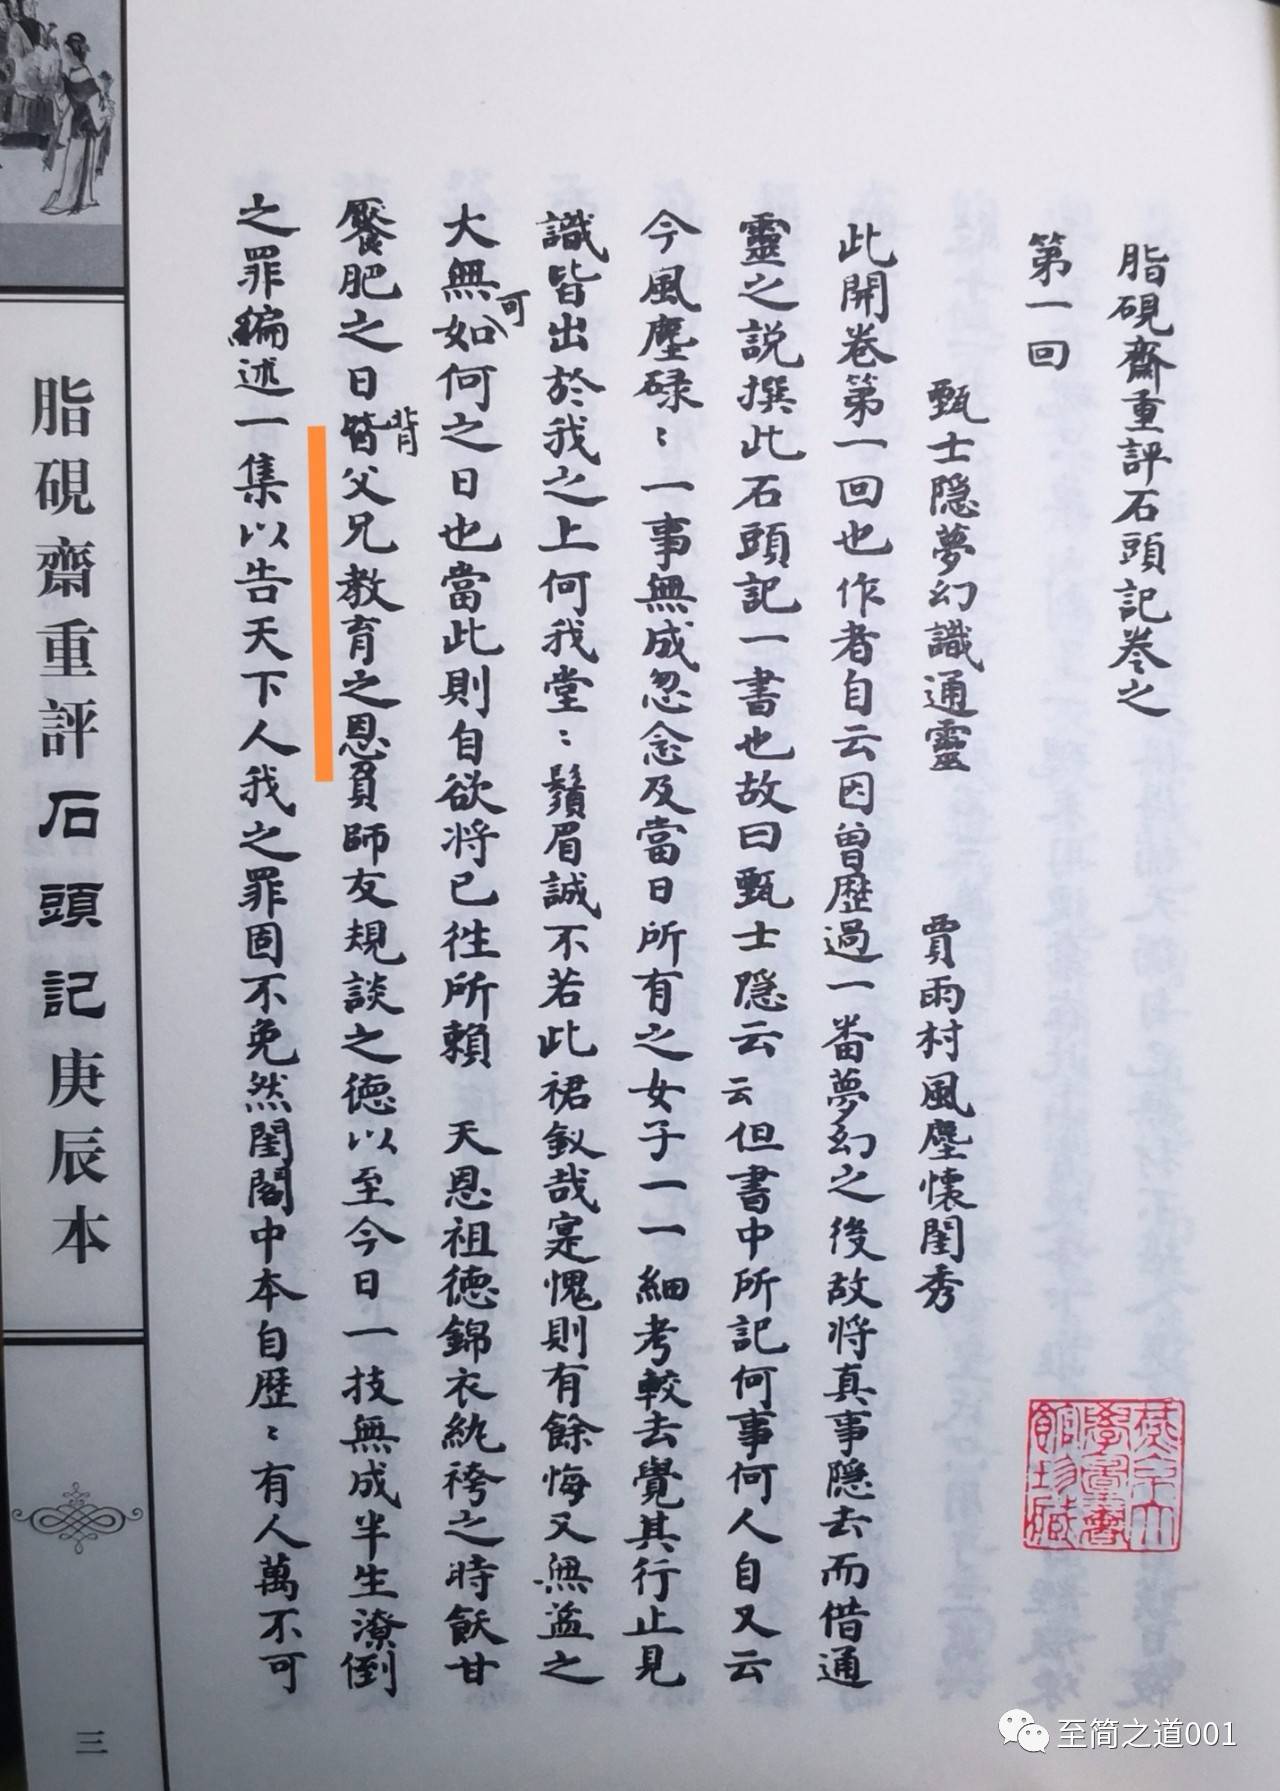 脂硯齋重評石頭記卷之
第一回
甄士隱夢幻識通靈　賈雨村風塵懷閨秀
此開卷第一回也作者自云因曾歷過一番夢幻之後故將真事隱去而借通
靈之說撰此石頭記一書也故曰甄士隱云云但書中所記何事何人自又云
今風塵碌〻一事無成忽念及當日所有之女子一一細考較去覺其行止見
識皆出於我之上何我堂〻鬚眉誠不若此裙釵哉寔愧則有餘悔又無益之
大無如可何之日也當此則自欲將已徃所賴　天恩祖德錦衣紈袴之時飫甘
饜肥之日皆背父兄教育之恩負師友規談之德以至今日一技無成半生潦倒
之罪編述一集以告天下人我之罪固不免然閨閣中本自歷〻有人萬不可
脂硯齋重評石頭記庚辰本
三
至简之道001